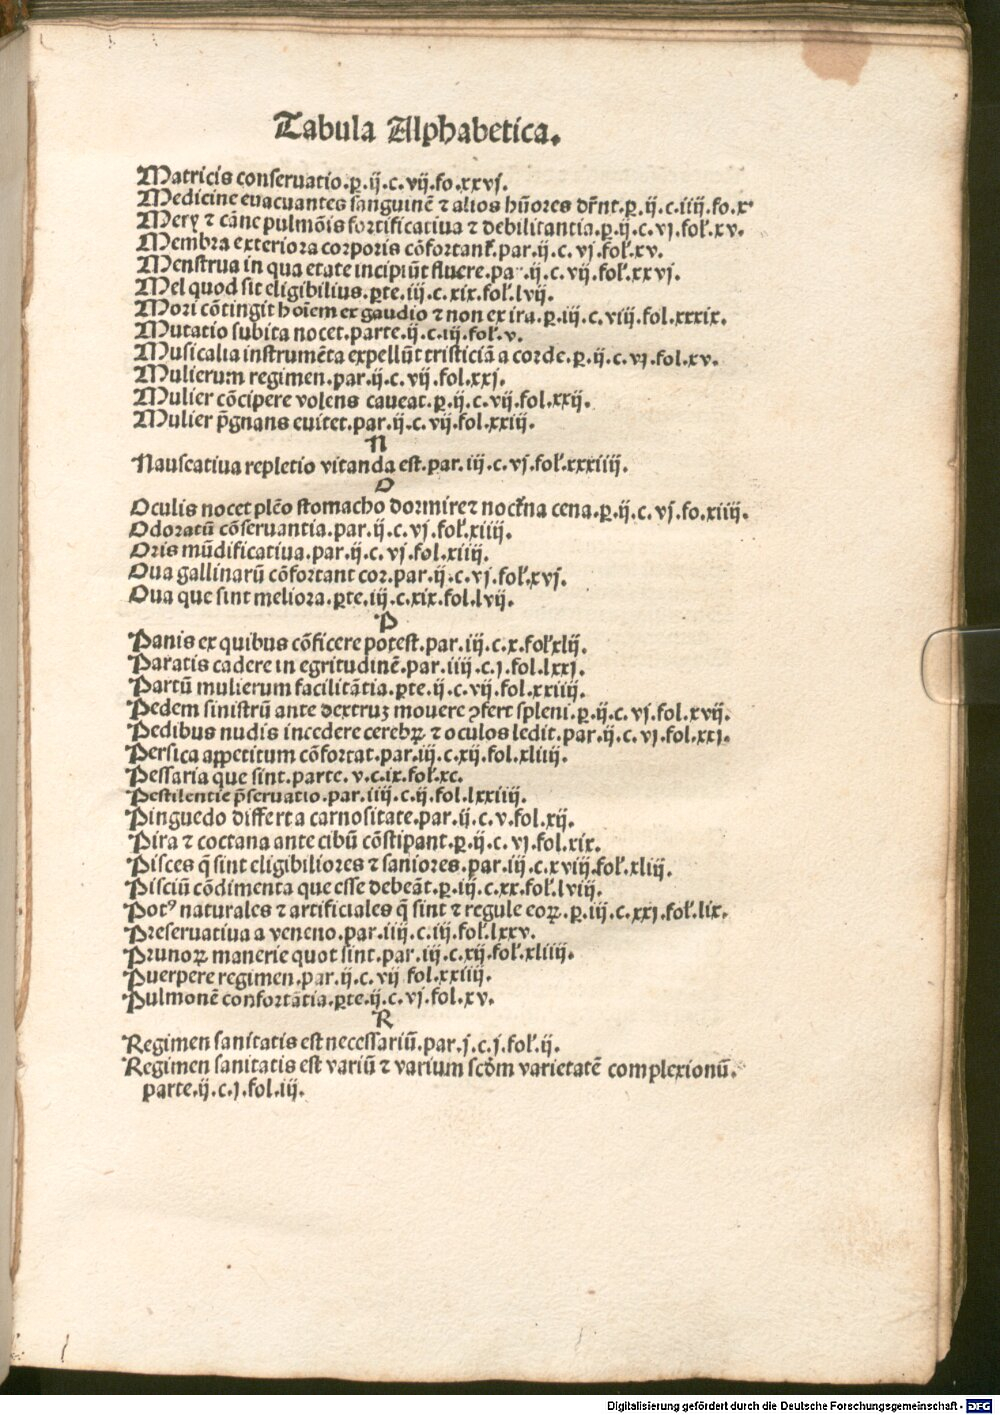 Tabula Alphabetica.
Matricis conseruatio.p̱.ij.c.vij.fo.xxvj.
Medicine euacuantes sanguinē ⁊ alios hūores dr̄nt.p̱.ij.c.iiij.fo.x.
Mery ⁊ cāne pulmōis fortificatiua ⁊ debilitantia.p̱.ij.c.vj.fol̛.xv.
Membra exteriora corporis cōfortant̛.par.ij.c.vj.fol̛.xv.
Menstrua in qua etate incipiūt fluere.par.ij.c.vij.fol̛.xxvj.
Mel quod sit eligibilius.p̱te.iij.c.xix.fol̛.lvij.
Mori cōtingit hoīem ex gaudio ⁊ non ex ira.p̱.iij.c.viij.fol.xxxix.
Mutatio subita nocet.parte.ij.c.iij.fol̛.v.
Musicalia instrumēta expellūt tristiciā a corde.p̱.ij.c.vj.fol.xv.
Mulierum regimen.par.ij.c.vij.fol.xxj.
Mulier cōcipere volens caueat.p̱.ij.c.vij.fol.xxij.
Mulier p̄gnans euitet.par.ij.c.vij.fol.xxiij.
N
Nauseatiua repletio vitanda est.par.iij.c.vj.fol̛.xxxiiij.
O
Oculis nocet plēo stomacho dormire⁊ noct̛na cena.p̱.ij.c.vj.fo.xiiij.
Odoratū cōseruantia.par.ij.c.vj.fol̛.xiiij.
Oris mūdificatiua.par.ij.c.vj.fol.xiiij.
Oua gallinarū cōfortant cor.par.ij.c.vj.fol̛.xvj.
Oua que sint meliora.p̱te.iij.c.xix.fol.lvij.
P
Panis ex quibus cōficere potest.par.iij.c.x.fol̛xlij.
Paratis cadere in egritudinē.par.iiij.c.j.fol.lxxj.
Partū mulierum facilitātia.p̱te.ij.c.vij.fol.xxiiij.
Pedem sinistrū ante dextruʒ mouere ꝯfert spleni.p̱.ij.c.vj.fol.xvij.
Pedibus nudis incedere cerebꝝ ⁊ oculos ledit.par.ij.c.vj.fol.xxj.
Persica appetitum cōfortat.par.iij.c.xij.fol.xliiij.
Pessaria que sint.parte.v.c.ix.fol̛.xc.
Pestilentie p̄seruatio.par.iiij.c.ij.fol.lxxiiij.
Pinguedo differt a carnositate.par.ij.c.v.fol.xij.
Pira ⁊ coctana ante cibū cōstipant.p̱.ij.c.vj.fol.xix.
Pisces q̄ sint eligibiliores ⁊ saniores.par.iij.c.xviij.fol̛.xlij.
Pisciū cōdimenta que esse debeāt.p̱.iij.c.xx.fol̛.lviij.
Potꝰ naturales ⁊ artificiales q̄ sint ⁊ regule eoꝝ.p̱.iij.c.xxj.fol̛.lix.
Preseruatiua a veneno.par.iiij.c.iij.fol̛.lxxv.
Prunoꝝ manerie quot sint.par.iij.c.xij.fol̛.xliiij.
Puerpere regimen.par.ij.c.vij fol.xxiiij.
Pulmonē confortātia.p̱te.ij.c.vj.fol.xv.
R
Regimen sanitatis est necessariū.par.j.c.j.fol̛.ij.
Regimen sanitatis est variū ⁊ varium scḋm varietatē complexionū.
parte.ij.c.j.fol.iij.
Digitalisierung gefördert durch die Deutsche Forschungsgemeinschaft - DFG